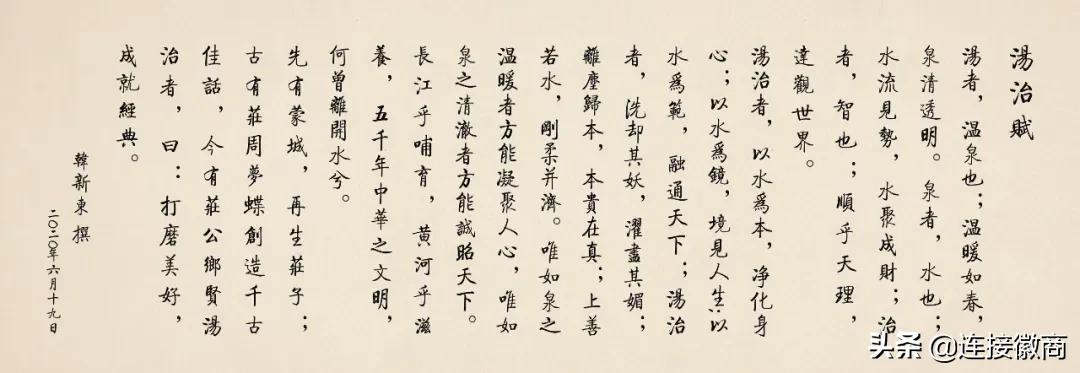 湯治賦
湯者，温泉也；温暖如春，
泉清透明。泉者，水也；
水流見勢，水聚成財；治
者，智也；順乎天理，
達觀世界。
湯治者，以水爲本，净化身
心；以水爲鏡，境見人生；以
水爲範，融通天下；湯治
者，洗却其妖，濯盡其媚；
離塵歸本，本貴在真；上善
若水，剛柔并濟。唯如泉之
温暖者方能凝聚人心，唯如
泉之清澈者方能誠昭天下。
長江乎哺育，黄河乎滋
養，五千年中華之文明，
何曾離開水兮。
先有蒙城，再生莊子；
古有莊周夢蝶創造千古
佳話，今有莊公鄉賢湯
治者，曰：打磨美好，
成就經典。
韓新東 撰
二〇二〇年六月十九日
头条 @连接徽商